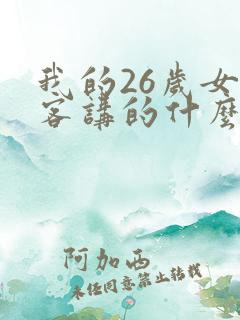 我的26歲女
客講的什麼
阿加西
未经同意禁止转载